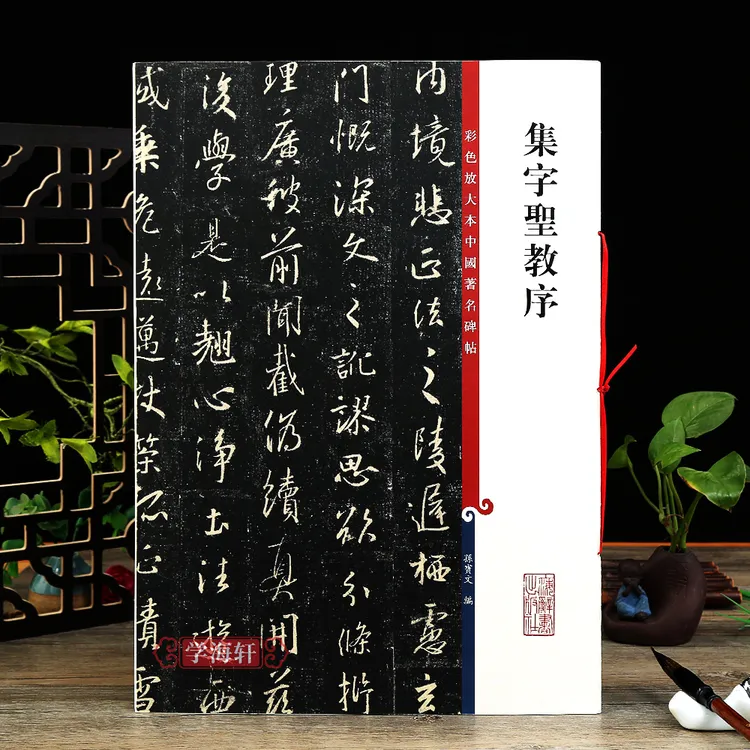 集字聖教序
彩色放大本中國著名碑帖
孫寶文 編
內境悲正法之陵遲栖慮玄
門慨深文之訛謬思欲分條析
理廣彼前聞截偽續真開茲
後學是以翹心淨土法遊西
域乘危遠邁杖策孤征積雪
学海轩